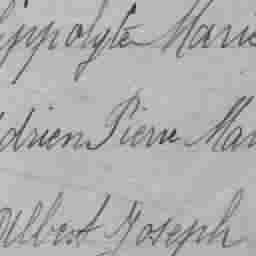 Hippolyte Marie
Adrien Pierre Mar
Albert Joseph